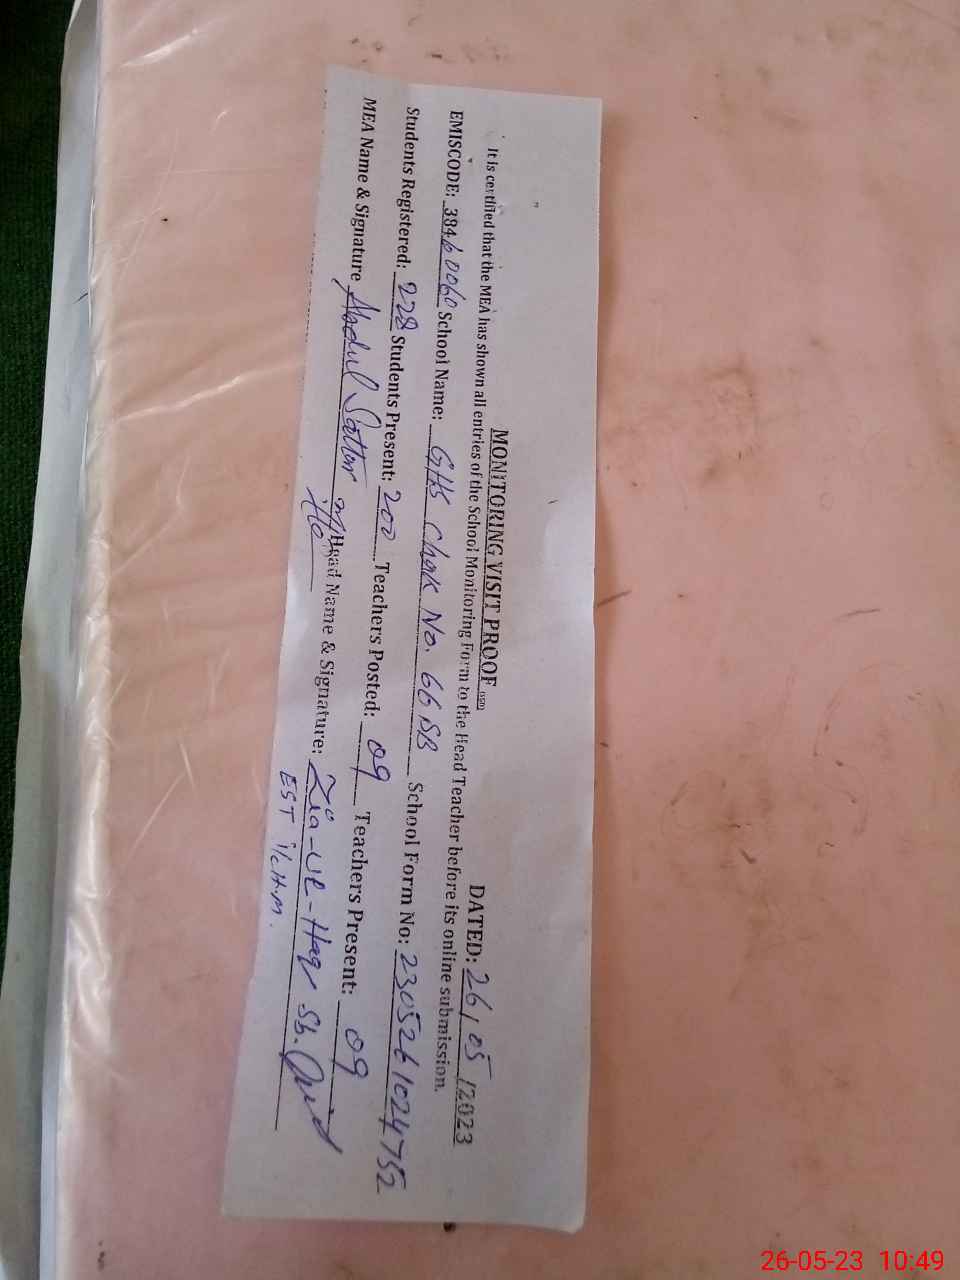 MONITORING VISIT PROOF
DATED: 26/05/2023
It is certified that the MEA has shown all entries of the School Monitoring Form to the Head Teacher before its online submission.
EMISCODE: 38460060 School Name: GHS Chak No. 66 SB School Form No: 2305261024752
Students Registered: 228 Students Present: 200 Teachers Posted: 09 Teachers Present: 09
MEA Name & Signature Abdul Sattar Head Name & Signature: Zia-ul-Haq Sb.
EST i/c H.M.
26-05-23 10:49